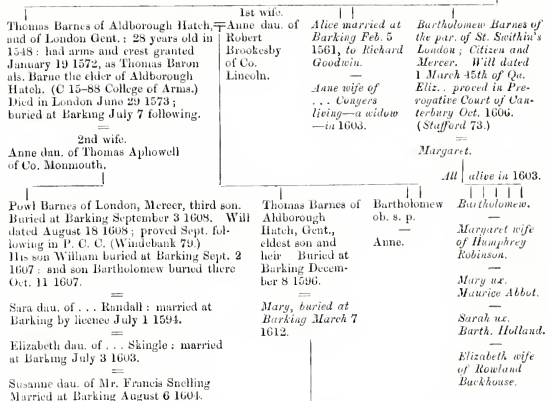 1st wife.
Thomas Barnes of Aldborough Hatch,
and of London Gent. ; 28 years old in
1548 : had arms and crest granted
January 19 1572, as Thomas Baron
als. Barne the elder of Aldborough
Hatch. (C 15–88 College of Arms.)
Died in London June 29 1573 ;
buried at Barking July 7 following.
=
2nd wife.
Anne dau. of Thomas Aphowell
of Co. Monmouth.
Anne dau. of
Robert
Brookesby
of Co.
Lincoln.
Alice married at
Barking Feb. 5
1561, to Richard
Goodwin.
—
Anne wife of
. . . Conyers
living—a widow
—in 1603.
Bartholomew Barnes of
the par. of St. Swithin's
London ; Citizen and
Mercer. Will dated
1 March 45th of Qu.
Eliz.. proved in Pre-
rogative Court of Can-
terbury Oct. 1606.
(Stafford 73.)
=
Margaret.
All alive in 1603.
Powl Barnes of London, Mercer, third son.
Buried at Barking September 3 1608. Will
dated August 18 1608 ; proved Sept. fol-
lowing in P. C. C. (Windebank 79.)
His son William buried at Barking Sept. 2
1607 : and son Bartholomew buried there
Oct. 11 1607.
=
Sara dau. of . . . Randall : married at
Barking by licence July 1 1594.
=
Elizabeth dau. of . . . Skingle : married
at Barking July 3 1603.
=
Susanne dau. of Mr. Francis Snelling
Married at Barking August 6 1604.
Thomas Barnes of
Aldborough
Hatch, Gent.,
eldest son and
heir Buried at
Barking Decem-
ber 8 1596.
=
Mary, buried at
Barking March 7
1612.
Bartholomew
ob. s. p.
—
Anne.
Bartholomew.
—
Margaret wife
of Humphrey
Robinson.
—
Mary ux.
Maurice Abbot.
—
Sarah ux.
Barth. Holland.
—
Elizabeth wife
of Rowland
Backhouse.